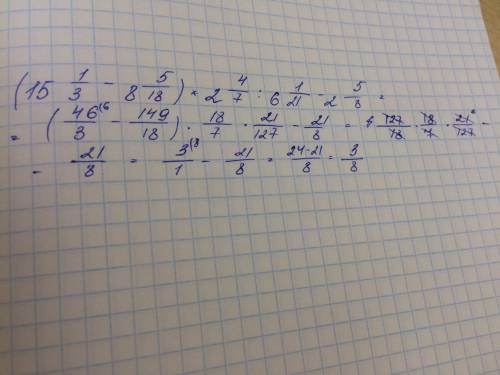 (15 1/3 - 8 5/18) * 2 4/7 : 6 1/21 - 2 5/8 =
= (46/3 (6 - 149/18) · 18/7 · 21/127 - 21/8 = 127/18 · 18/7 · 21/127 -
- 21/8 = 3/1 (8 - 21/8 = 24-21/8 = 3/8